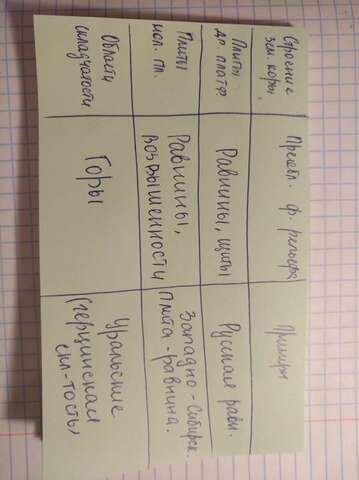 Строение
зем. коры.
Преобл. ф. рельефа
Примеры
Плиты
др. платф
Равнины, щиты
Русская равн.
Плиты
мол. пл.
Равнины,
возвышенности
Западно-Сибирск.
плита-равнина.
Области
складчатости
Горы
Уральские
(герцинская
скл-тость)